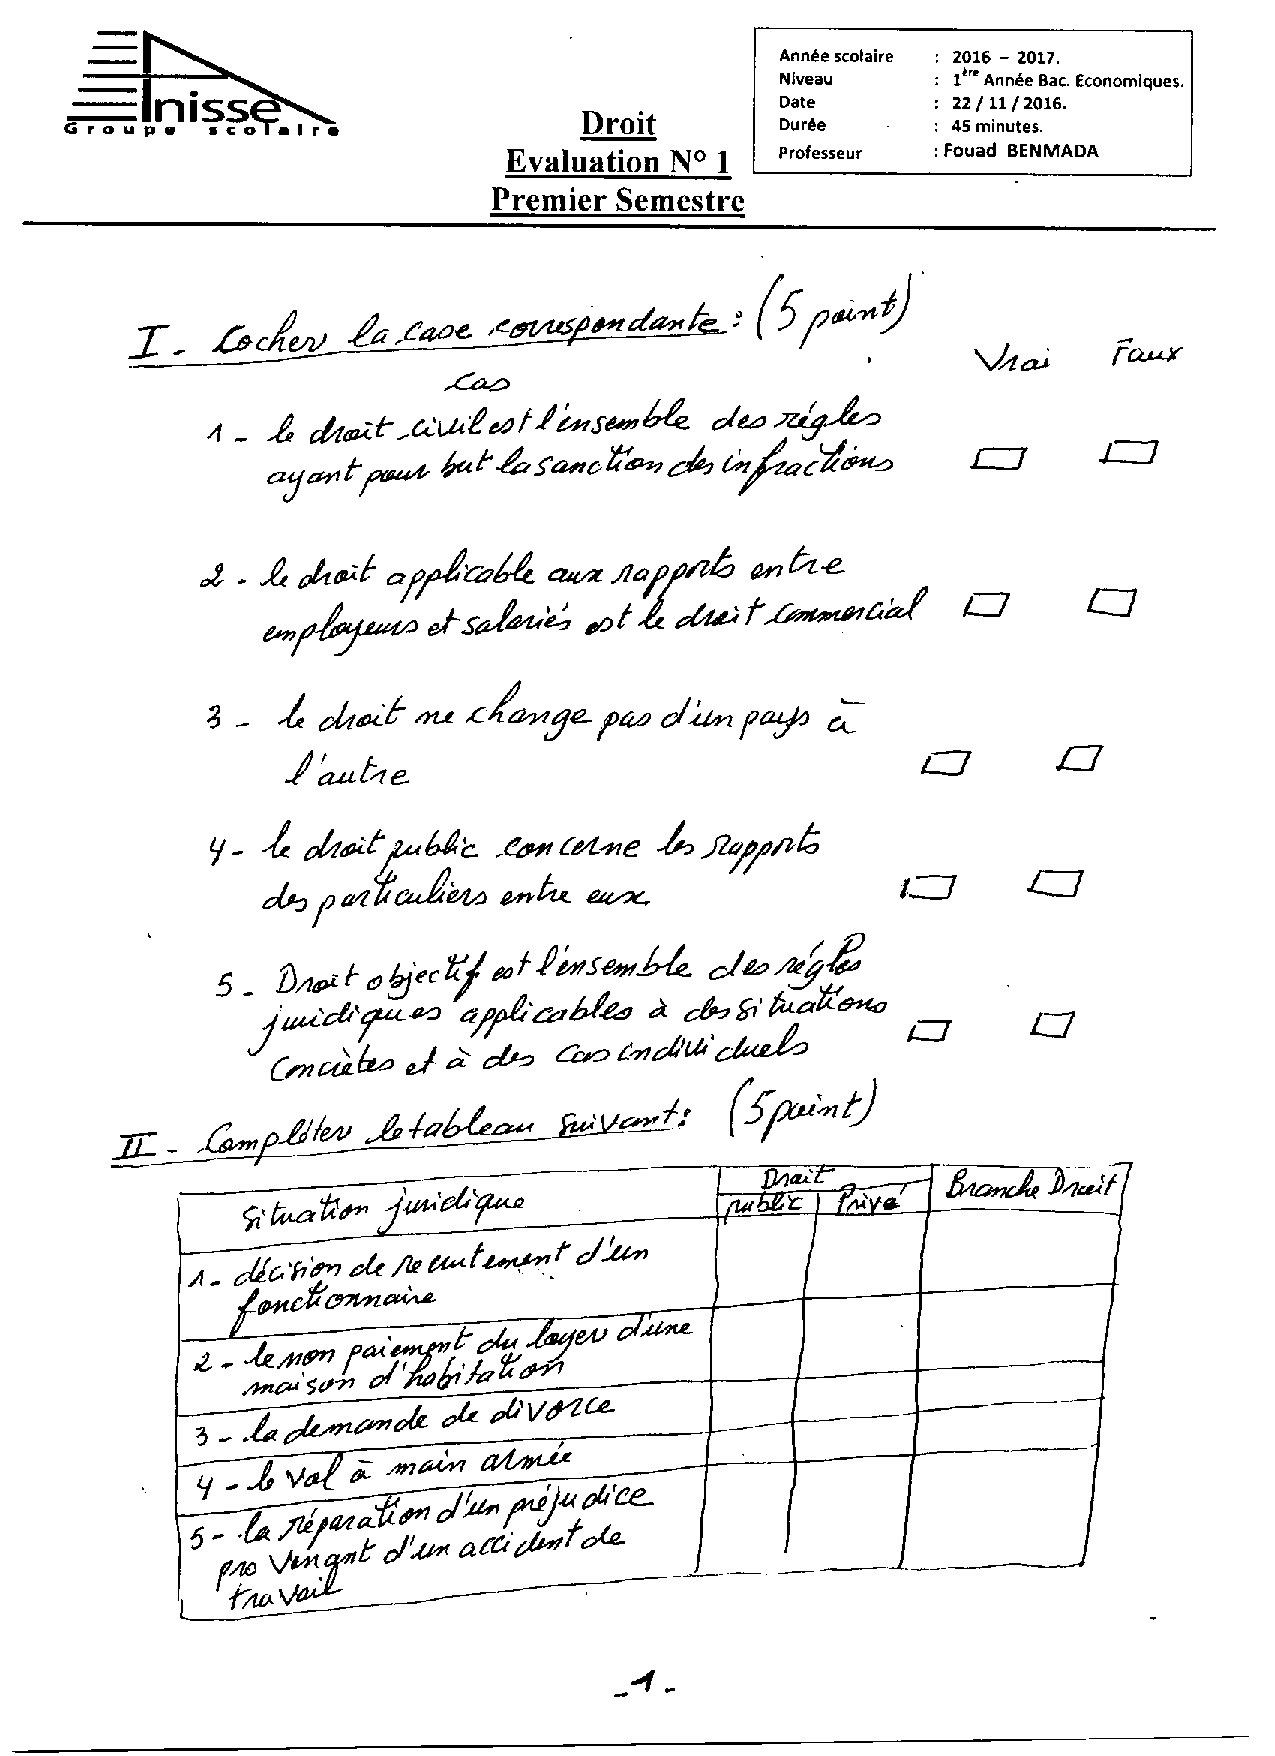 Anisse
Groupe scolaire
Année scolaire : 2016 – 2017.
Niveau : 1ère Année Bac. Economiques.
Date : 22 / 11 / 2016.
Durée : 45 minutes.
Professeur : Fouad BENMADA
Droit
Evaluation N° 1
Premier Semestre
I - Cocher la case correspondante : (5 point)
Vrai Faux
cas
1 - le droit civil est l'ensemble des régles
ayant pour but la sanction des infractions
2 - le droit applicable aux rapports entre
employeurs et salariés est le droit commercial
3 - le droit ne change pas d'un pays à
l'autre
4 - le droit public concerne les rapports
des particuliers entre eux.
5 - Droit objectif est l'ensemble des régles
juridiques applicables à des situations
concrètes et à des cas individuels
II - Compléter le tableau suivant : (5 point)
Situation juridique
Droit
public Privé
Branche Droit
1 - décision de recrutement d'un
fonctionnaire
2 - le non paiement du loyer d'une
maison d'habitation
3 - la demande de divorce
4 - le vol à main armée
5 - la réparation d'un préjudice
provenant d'un accident de
travail
- 1 -